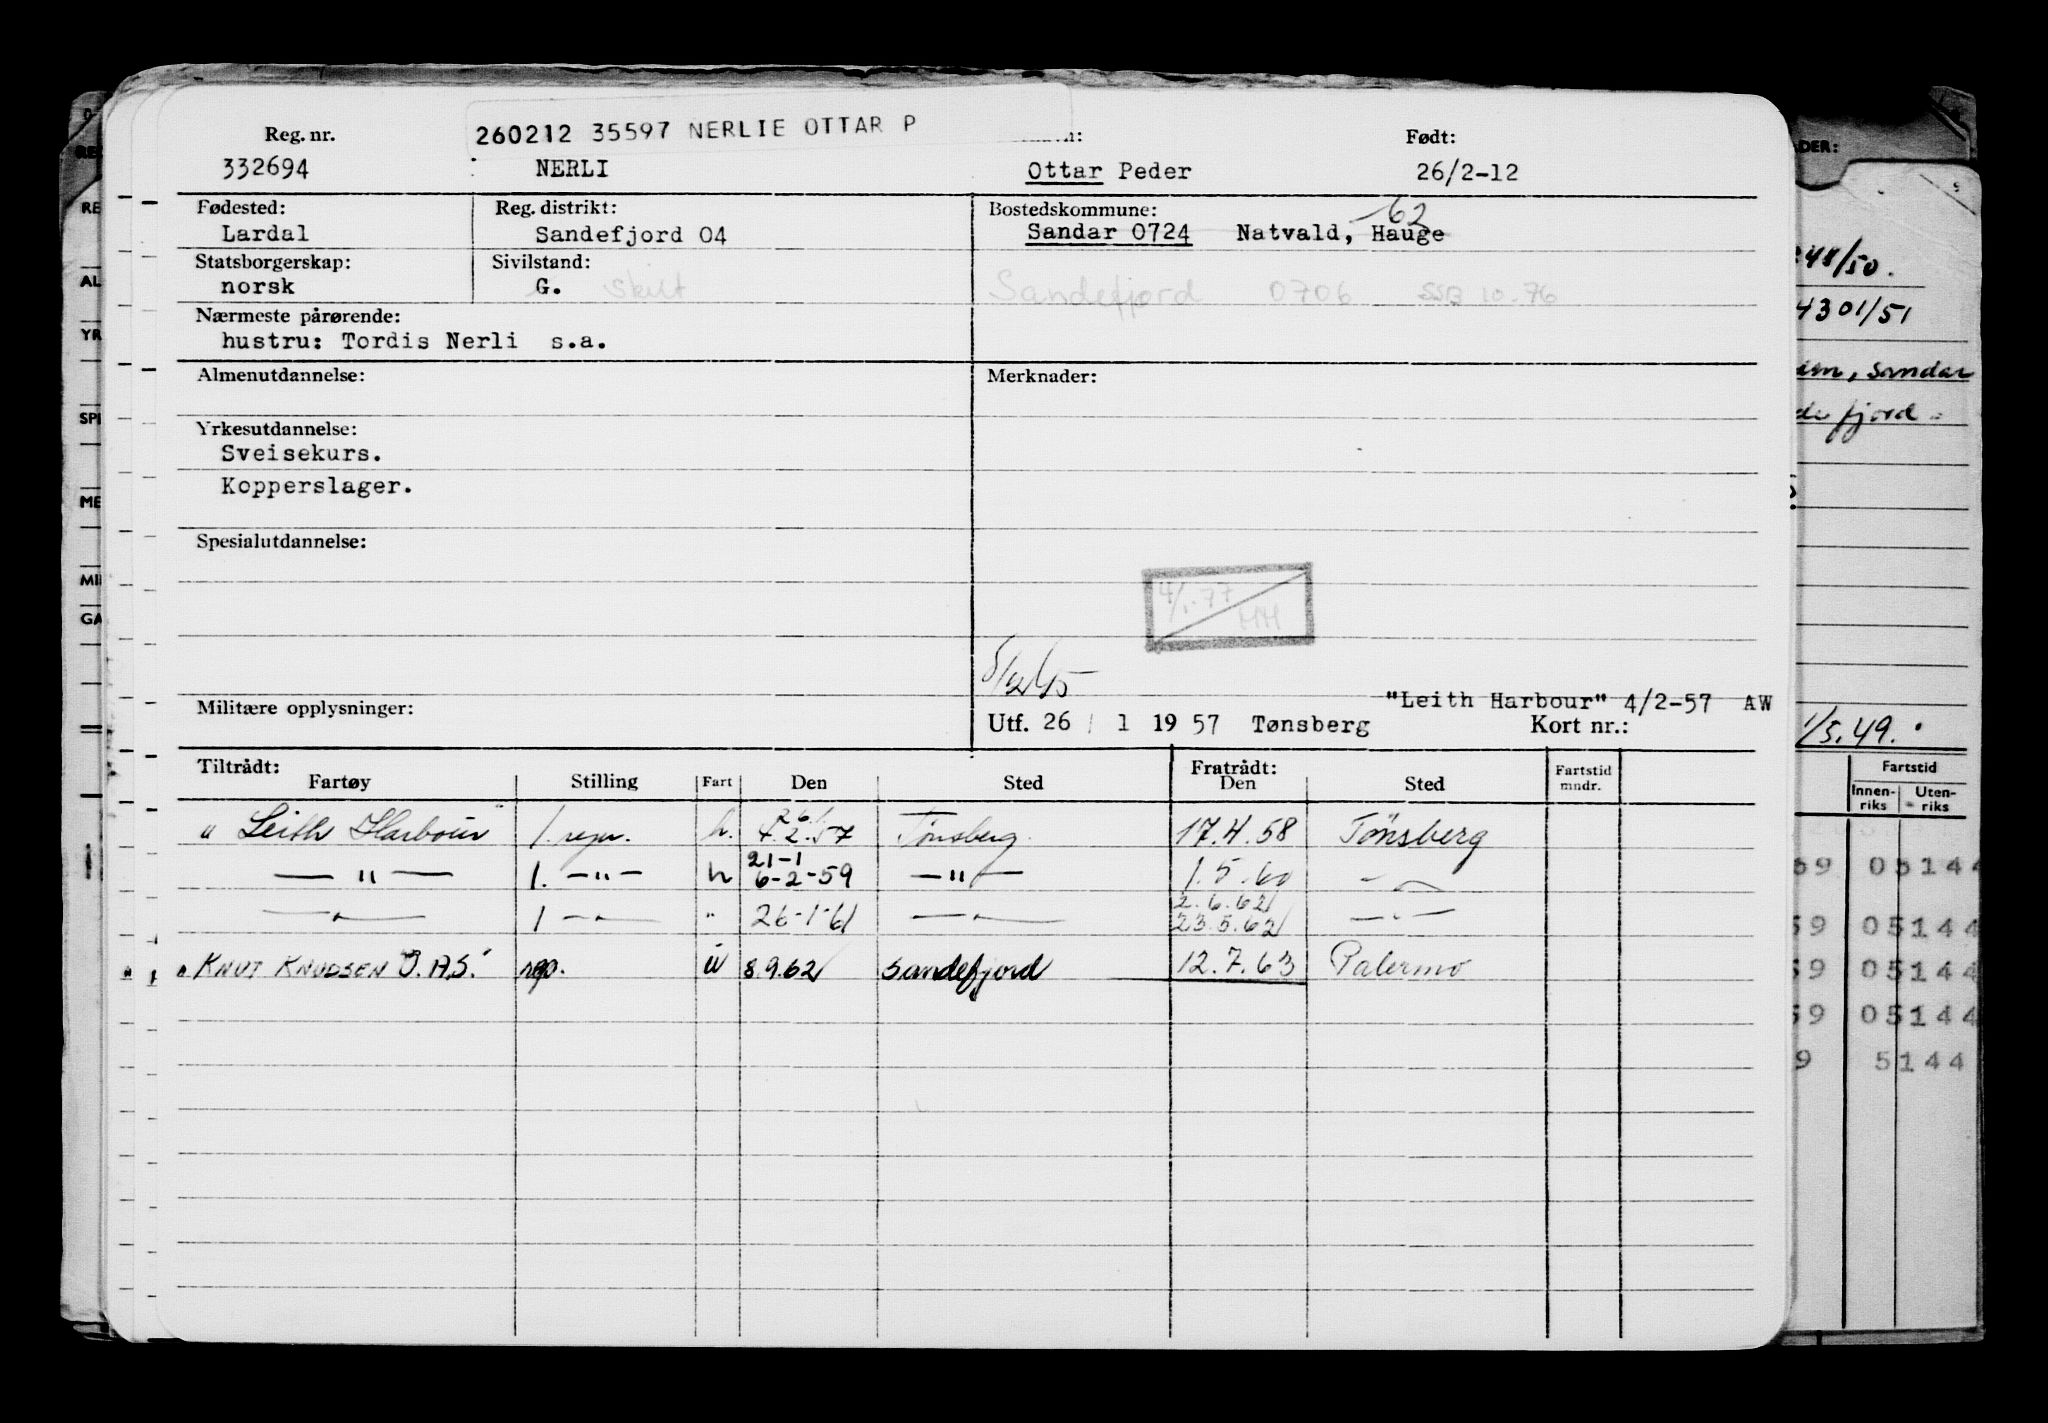 Reg. nr. 260212 35597 NERLIE OTTAR P Født:
332694 NERLI Ottar Peder 26/2-12
Fødested: Reg. distrikt: Bostedskommune: 62
Lardal Sandefjord 04 Sandar 0724 Natvald, Hauge
Statsborgerskap: Sivilstand:
norsk G. skilt Sandefjord 0706 SSB 10.76
Nærmeste pårørende:
hustru: Tordis Nerli s.a.
Almenutdannelse: Merknader:
Yrkesutdannelse:
Sveisekurs.
Kopperslager.
Spesialutdannelse:
4/1.77
HH
"Leith Harbour" 4/2-57 AW
Militære opplysninger: Utf. 26 / 1 19 57 Tønsberg Kort nr.:
Tiltrådt: Fratrådt:
Fartøy Stilling Fart Den Sted Den Sted Fartstid mndr.
26/1
"Leith Harbour" 1. repr. h. 4.2.57 Tønsberg. 17.4.58 Tønsberg
21-1
— " — 1. — " — h 6-2-59 — " — 1.5.60 — " —
2.6.62
— " — 1 — " — " 26-1-61 — " — 23.5.62 — " —
"KNUT KNUDSEN O.A.S." rep. u 8.9.62 Sandefjord 12.7.63 Palermo
DER:
248/50.
4301/51
, Sandar
de fjord
1/5.49.
Fartstid
Innen-riks Uten-riks
59 05144
59 05144
59 05144
59 05144
9 5144
RE
AL
YR
SPE
ME
MI
GA